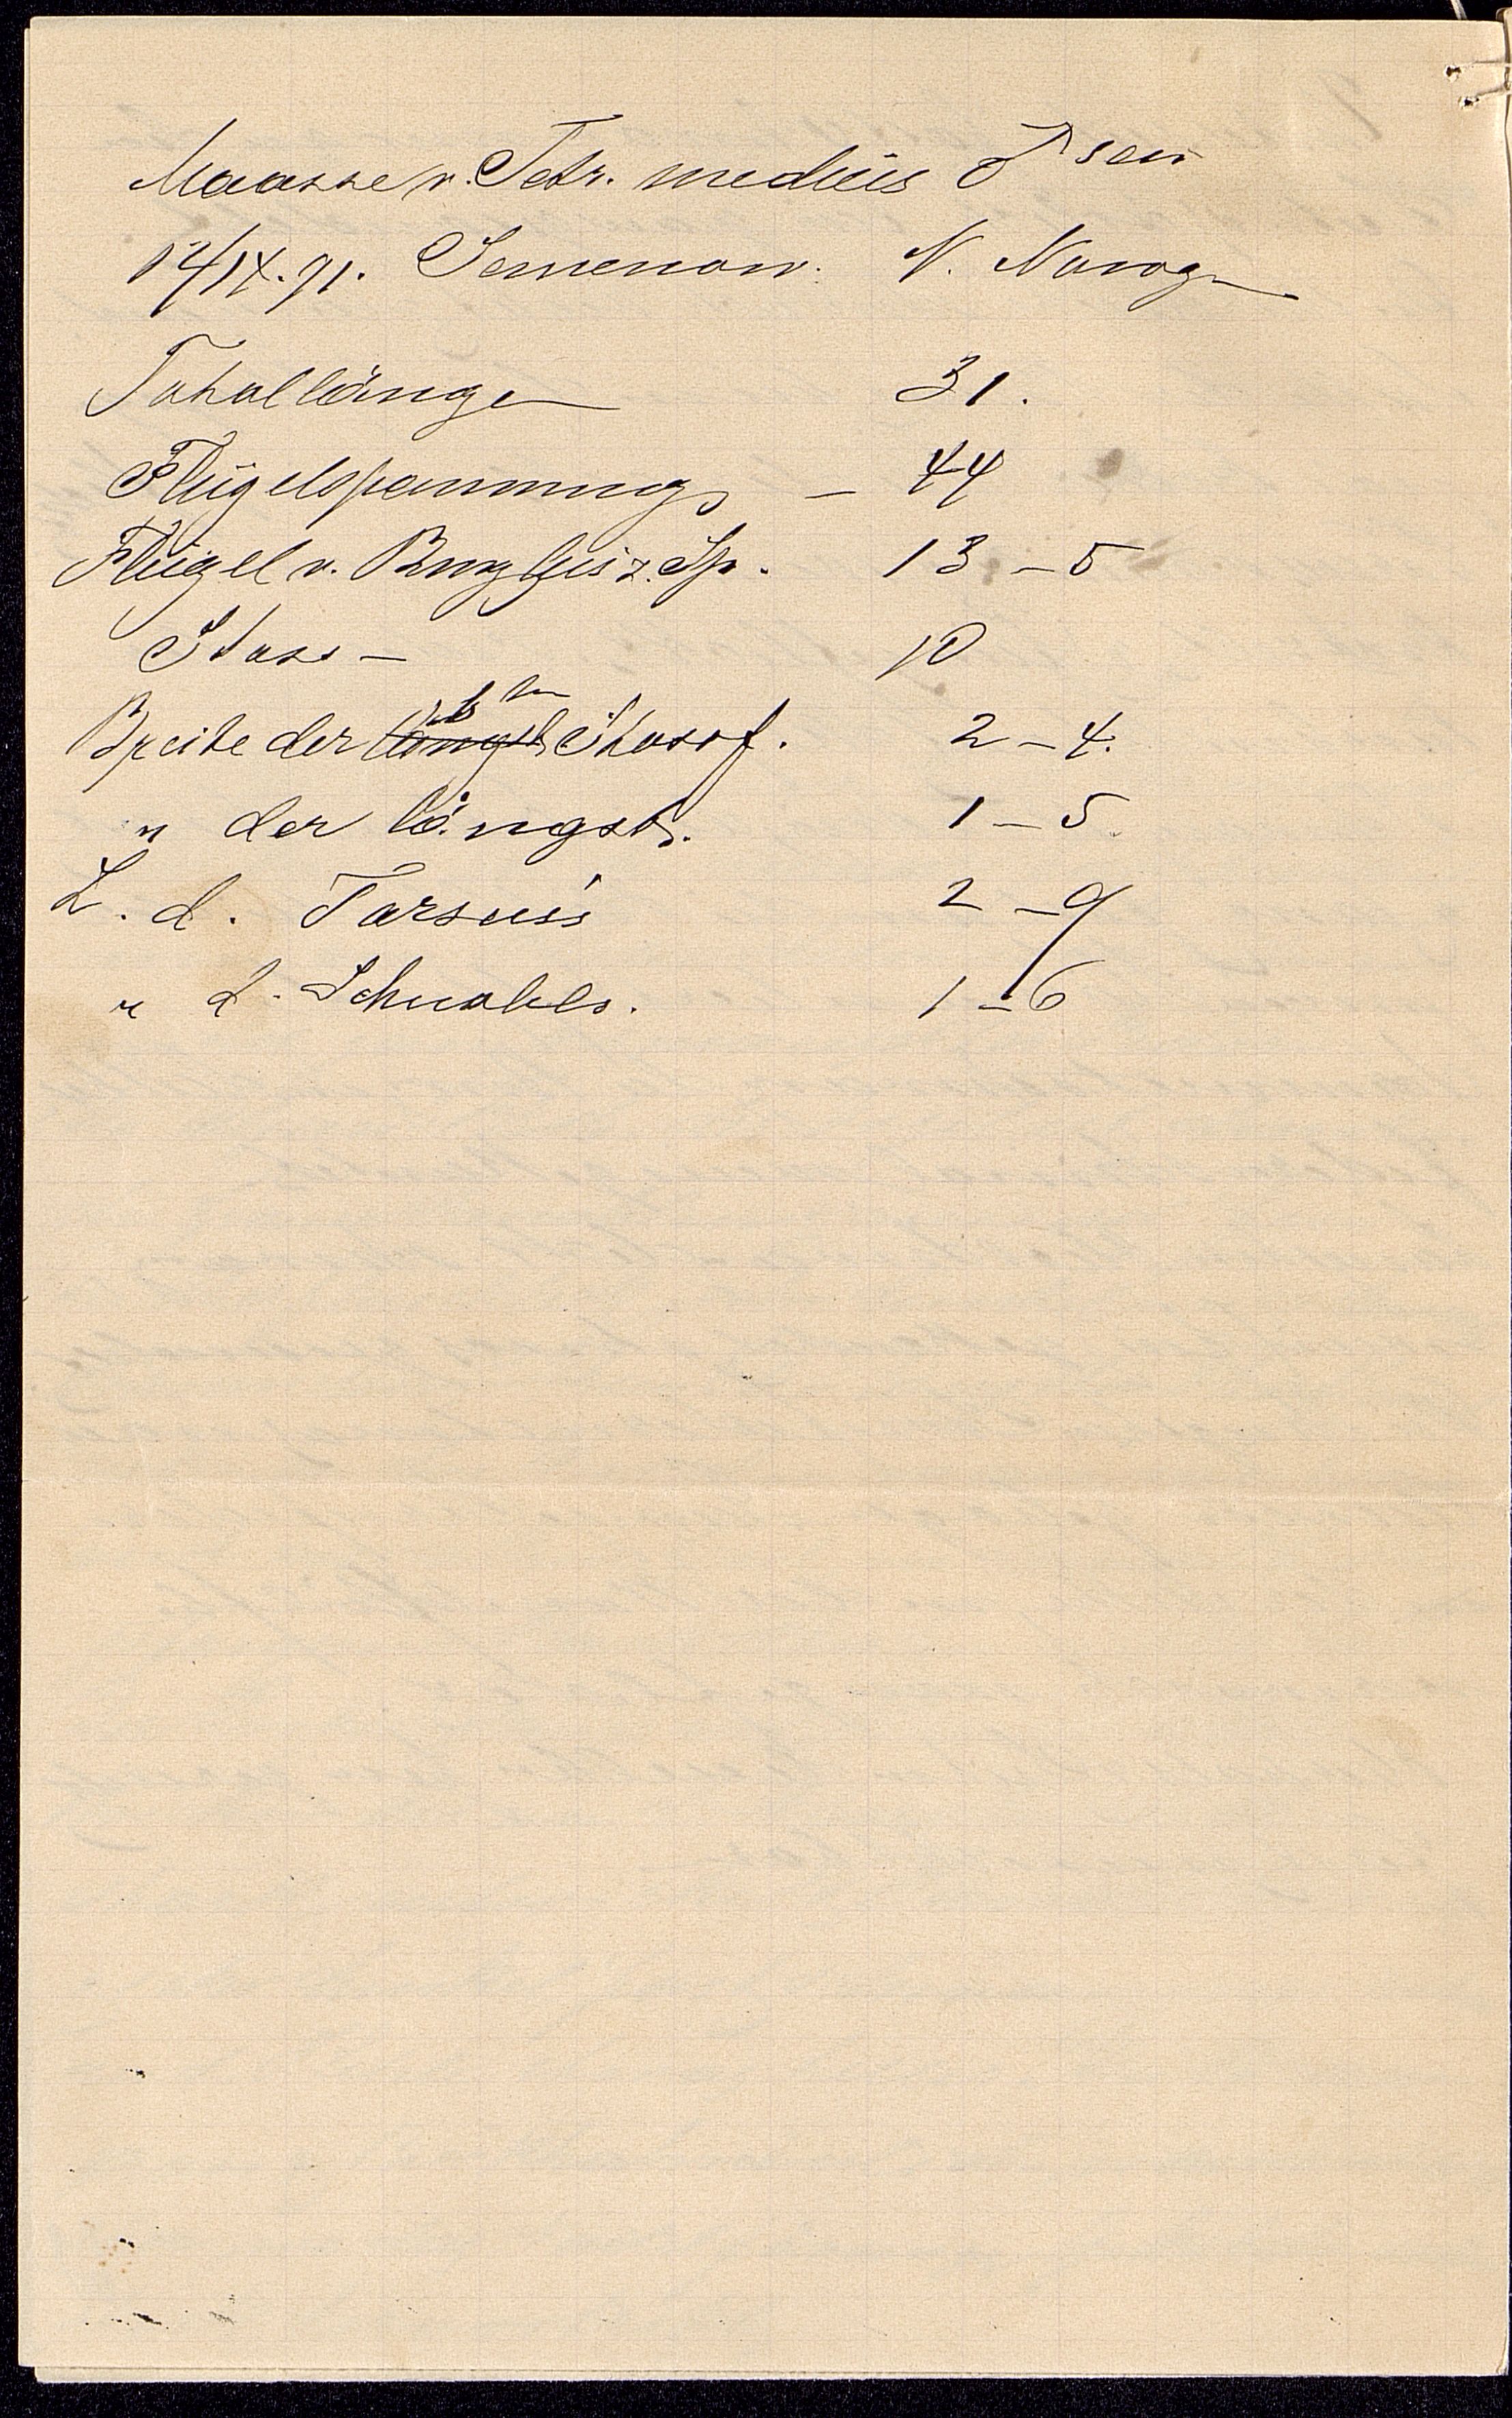 Maasse v. Tetr. medius ♂ sen
12/IX. 91. Semenow. N. Nowg
Totallänge 31.
Flügelspannung – 44
Flügel v. Bug bis z. Sp. 13 – 5
Stoss – 10
Breite der Stossf. 2 – 4.
" der längst. 1 – 5
L. d. Tarsus 2 – 9
" d. Schnabels. 1 – 6